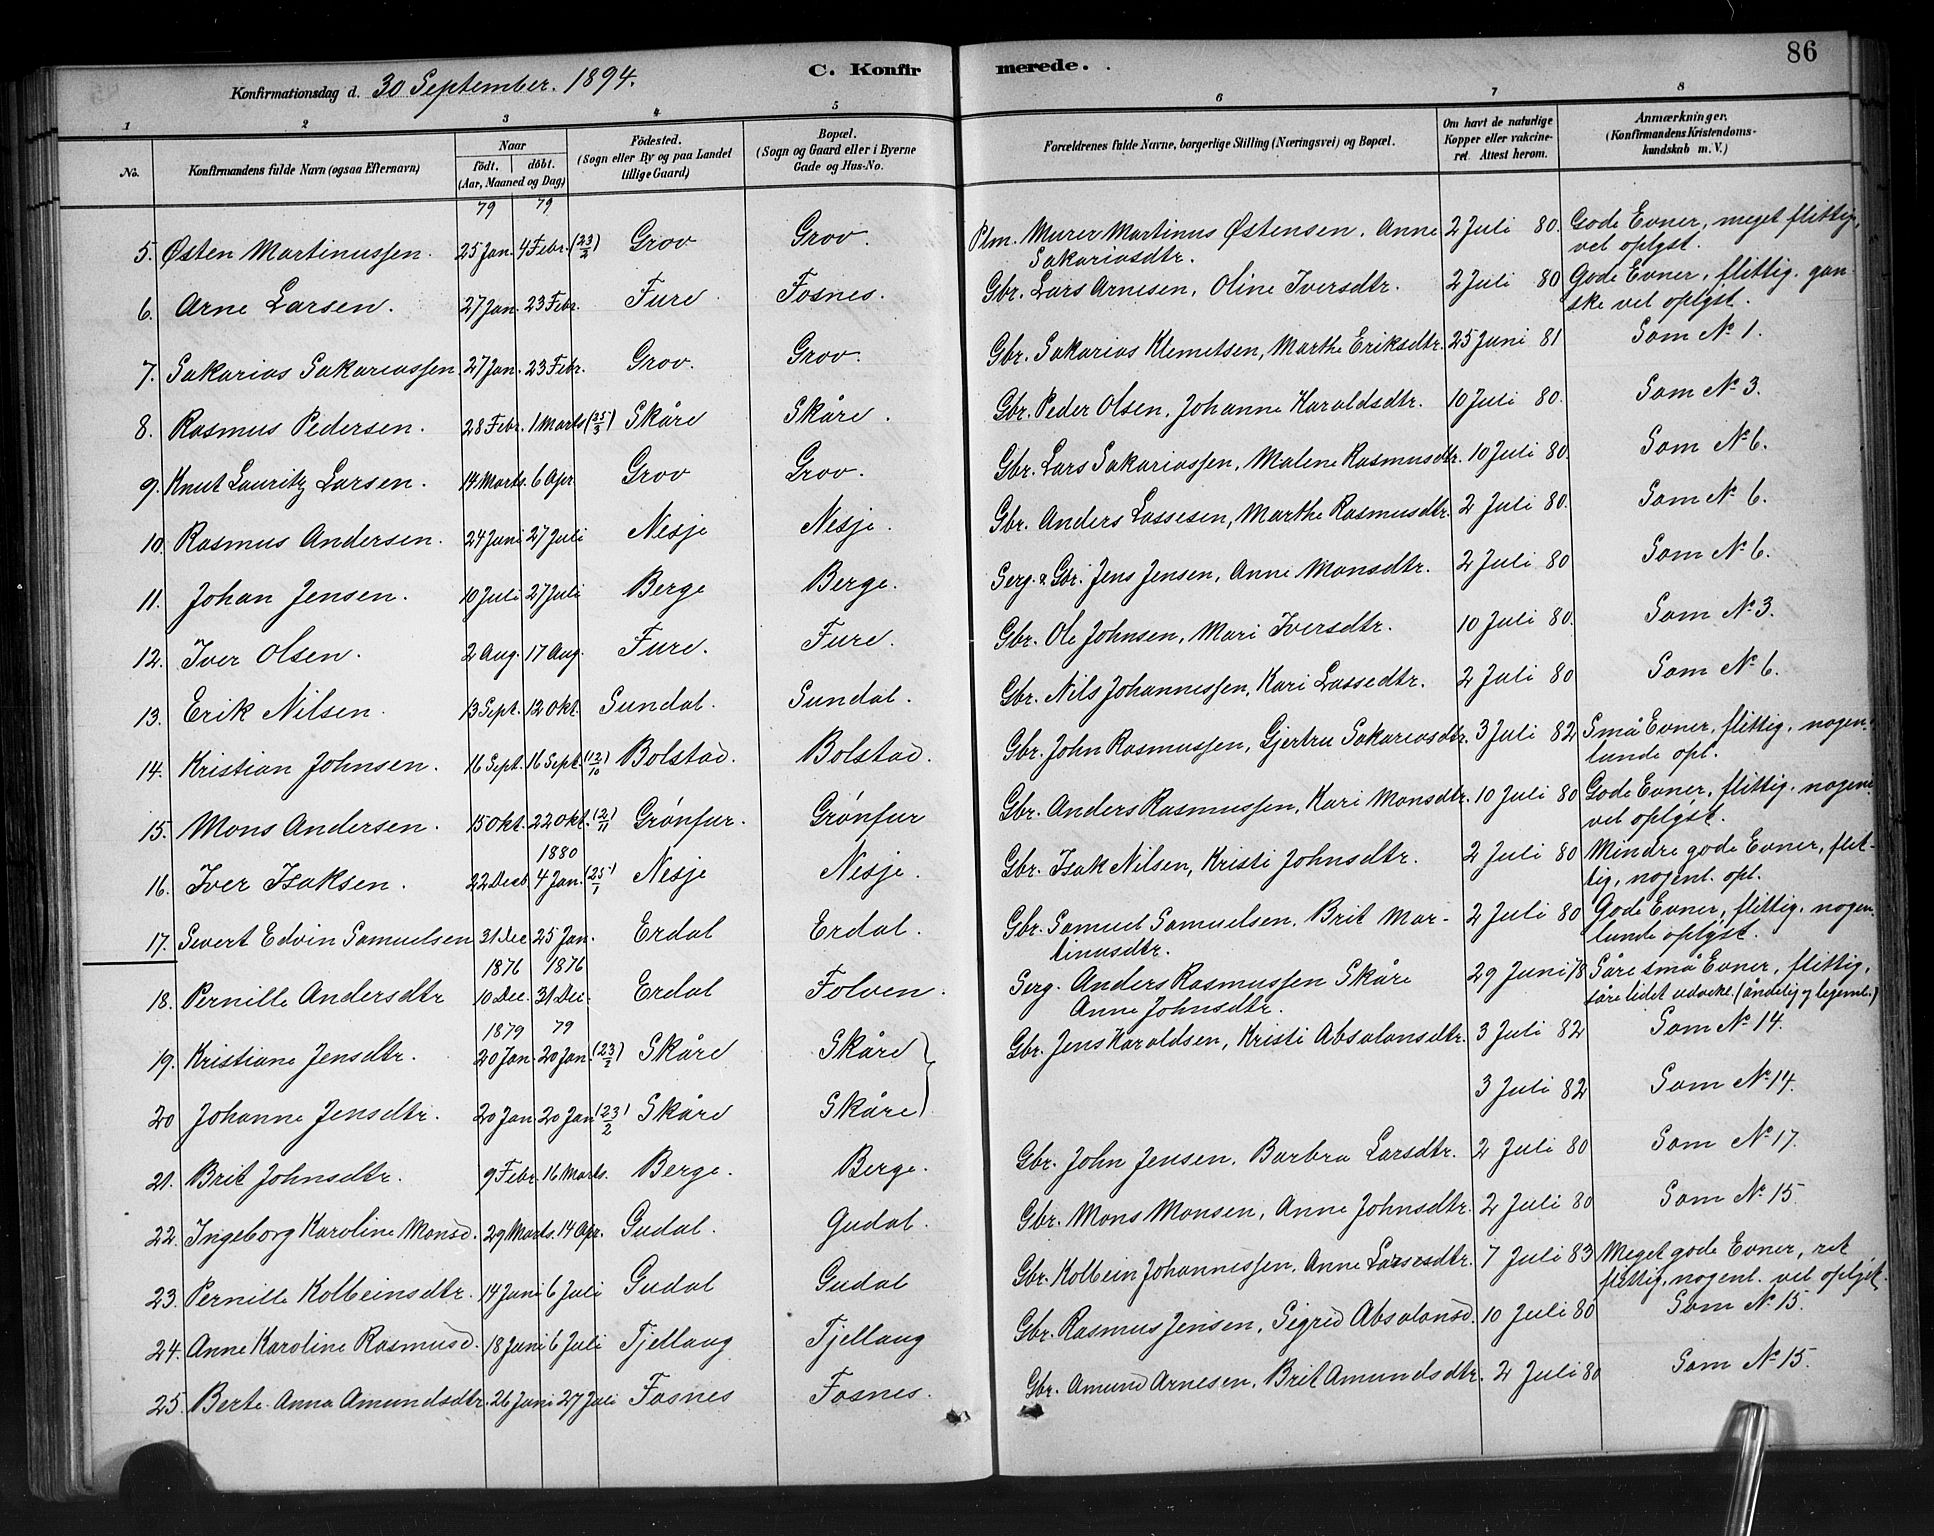 86
C. Konfirmerede.
Konfirmationsdag d. 30 September. 1894.
1 2 3 4 5 6 7 8
No. Konfirmandens fulde Navn (ogsaa Efternavn) Naar født. døbt. (Aar, Maaned og Dag) Fødested. (Sogn eller By og paa Landet tillige Gaard) Bopæl. (Sogn og Gaard eller i Byerne Gade og Hus-No. Forældrenes fulde Navne, borgerlige Stilling (Næringsvei) og Bopæl. Om havt de naturlige Kopper eller vakcineret. Attest herom. Anmærkninger, (Konfirmandens Kristendomskundskab m. V.)
79 79
5. Østen Martinussen. 25 Jan. 4 Febr. (23/2) Grov Grov. Plm. Murer Martinus Østensen, Anne Sakariasdtr. 2 Juli 80. Gode Evner, meget flittig, vel oplyst.
6. Arne Larsen. 27 Jan. 23 Febr. Fure. Fosnes. Gbr. Lars Arnesen, Oline Iversdtr. 2 Juli 80 Gode Evner, flittig. ganske vel oplyst.
7. Sakarias Sakariassen 27 Jan. 23 Febr. Grov. Grov. Gbr. Sakarias Klemetsen, Marthe Eriksdtr. 25 Juni 81 Som No 1.
8. Rasmus Pedersen. 28 Febr. 1 Marts (25/3) Skåre Skåre. Gbr. Peder Olsen, Johanne Haraldsdtr. 10 Juli 80. Som No 3.
9. Knut Lauritz Larsen. 14 Marts. 6 Apr. Grov Grov. Gbr. Lars Sakariassen, Malene Rasmusdtr. 10 Juli 80. Som No 6.
10. Rasmus Andersen. 24 Juni 27 Juli Nesje Nesje. Gbr. Anders Lassesen, Marthe Rasmusdtr. 2 Juli 80. Som No 6.
11. Johan Jensen. 10 Juli 27 Juli Berge Berge. Serg. & Gbr. Jens Jensen, Anne Monsdtr. 2 Juli 80 Som No 6.
12. Iver Olsen. 2 Aug. 17 Aug. Fure. Fure. Gbr. Ole Johnsen, Mari Iversdtr. 10 Juli 80. Som No 3.
13. Erik Nilsen. 13 Sept. 12 Okt. Sundal. Sundal. Gbr. Nils Johannessen, Kari Lassedtr. 2 Juli 80 Som No 6.
14. Kristian Johnsen. 16 Sept. 16 Sept. (12/10) Bolstad. Bolstad. Gbr. John Rasmussen, Gjertru Sakariasdtr. 3 Juli 82 Små Evner, flittig, nogenlunde opl.
15. Mons Andersen. 15 Okt. 22 Okt. (2/11) Grønfur. Grønfur Gbr. Anders Rasmussen, Kari Monsdtr. 10 Juli 80 Gode Evner, flittig. nogenl. vel oplyst.
1880
16. Iver Isaksen. 22 Decb. 4 Jan. (25/1) Nesje Nesje. Gbr. Isak Nilsen, Kristi Johnsdtr. 2 Juli 80 Mindre gode Evner, flittig, nogenl. opl.
17. Sivert Edvin Samuelsen 31 Dec 25 Jan. Erdal Erdal. Gbr. Samuel Samuelsen, Brit Martinusdtr. 2 Juli 80 Gode Evner, flittig. nogenlunde oplyst.
1876 1876
18. Pernille Andersdtr 10 Dec. 31 Dec. Erdal Folven. Serg. Anders Rasmussen Skåre Anne Johnsdtr. 29 Juni 78 Såre små Evner, flittig, såre lidet udvikl. (åndelig og legeml.)
1879 79
19. Kristiane Jensdtr. 20 Jan. 20 Jan. (23/2) Skåre Skåre Gbr. Jens Haraldsen, Kristi Absalonsdtr. 3 Juli 82 Som No 14.
20 Johanne Jensdtr. 20 Jan. 20 Jan (23/2) Skåre Skåre 3 Juli 82 Som No 14.
21. Brit Johnsdtr. 9 Febr. 16 Marts. Berge. Berge. Gbr. John Jensen, Barbra Larsdtr. 2 Juli 80 Som No 17.
22. Ingeborg Karoline Monsd. 29 Marts. 14 Apr. Gudal. Gudal. Gbr. Mons Monsen, Anne Johnsdtr. 2 Juli 80 Som No 15.
23. Pernille Kolbeinsdtr. 14 Juni 6 Juli Gudal Gudal Gbr. Kolbein Johannessen, Anne Larsesdtr. 7 Juli 83 Meget gode Evner, ret flittig, nogenl. vel oplyst.
24. Anne Karoline Rasmusd. 18 Juni 6 Juli Tjellaug Tjellaug Gbr. Rasmus Jensen, Sigrid Absalonsd. 10 Juli 80 Som No 15.
25. Berte Anna Amundsdtr. 26 Juni 27 Juli Fosnes Fosnes. Gbr. Amund Arnesen, Brit Amundsdtr. 2 Juli 80 Som No 15.